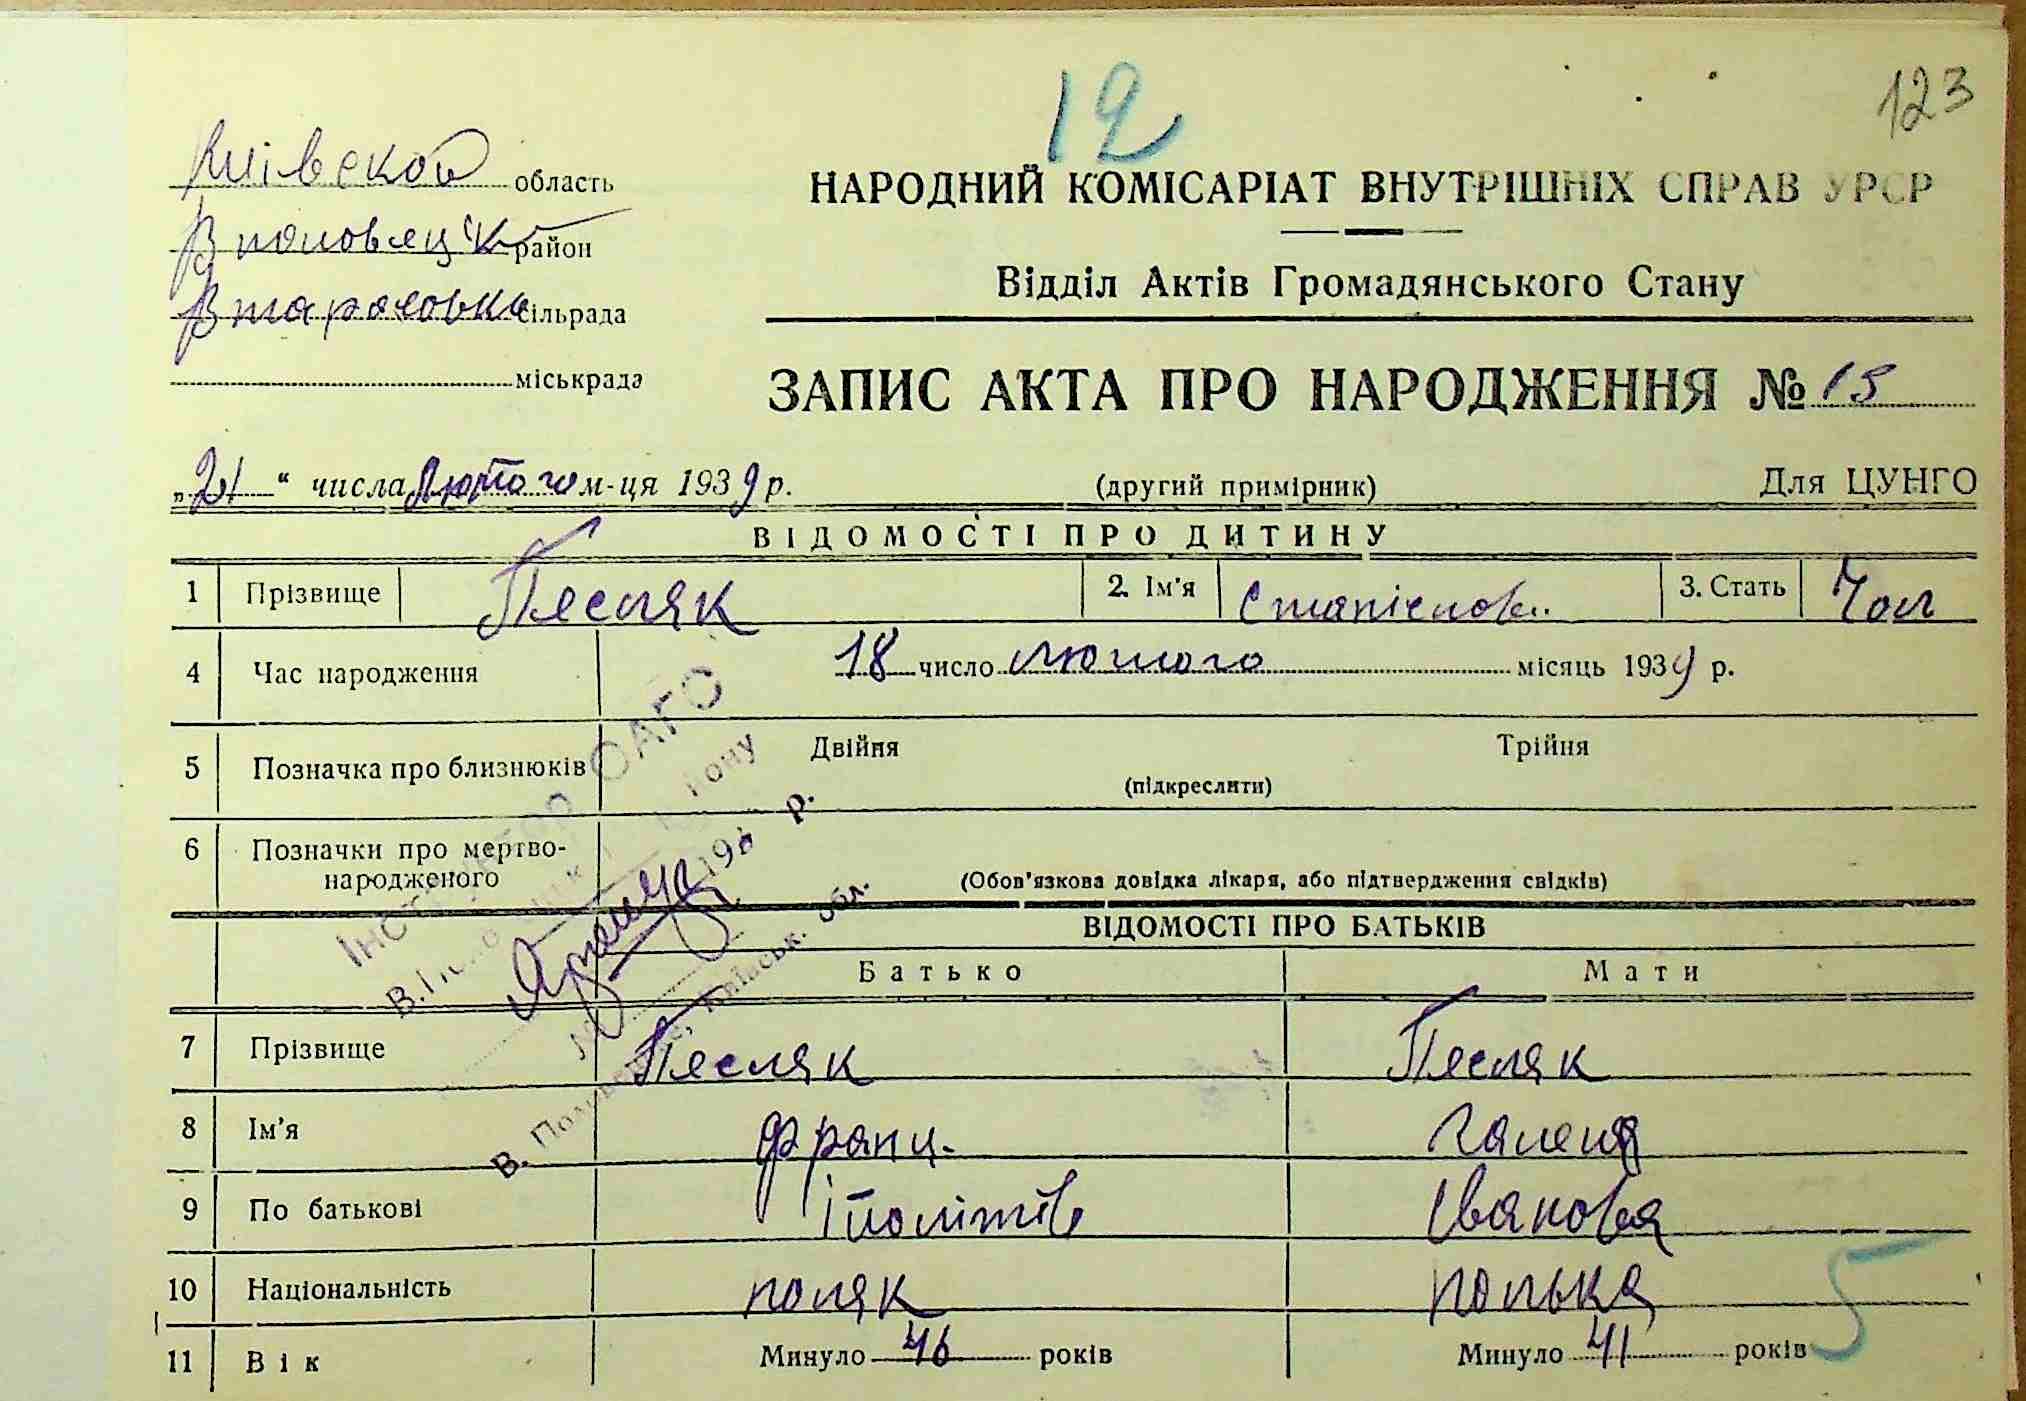 12
123
Київской область
район
сільрада
міськрада
НАРОДНИЙ КОМІСАРІАТ ВНУТРІШНІХ СПРАВ УРСР
Відділ Актів Громадянського Стану
ЗАПИС АКТА ПРО НАРОДЖЕННЯ № 15
„21“ числа лютого м-ця 1939 р. (другий примірник) Для ЦУНГО
ВІДОМОСТІ ПРО ДИТИНУ
1 Прізвище Песляк 2. Ім'я 3. Стать Чол
4 Час народження 18 число лютого місяць 1939 р.
5 Позначка про близнюків Двійня Трійня
(підкреслити)
6 Позначки про мертво-
народженого (Обов'язкова довідка лікаря, або підтвердження свідків)
Інструктор ОАГС
району
193 р.
В. Половецьке, Київськ. обл.
ВІДОМОСТІ ПРО БАТЬКІВ
Батько Мати
7 Прізвище Песляк Песляк
8 Ім'я Франц. Галена
9 По батькові Іполітів Іванова
10 Національність поляк полька
5
11 Вік Минуло 46 років Минуло 41 років